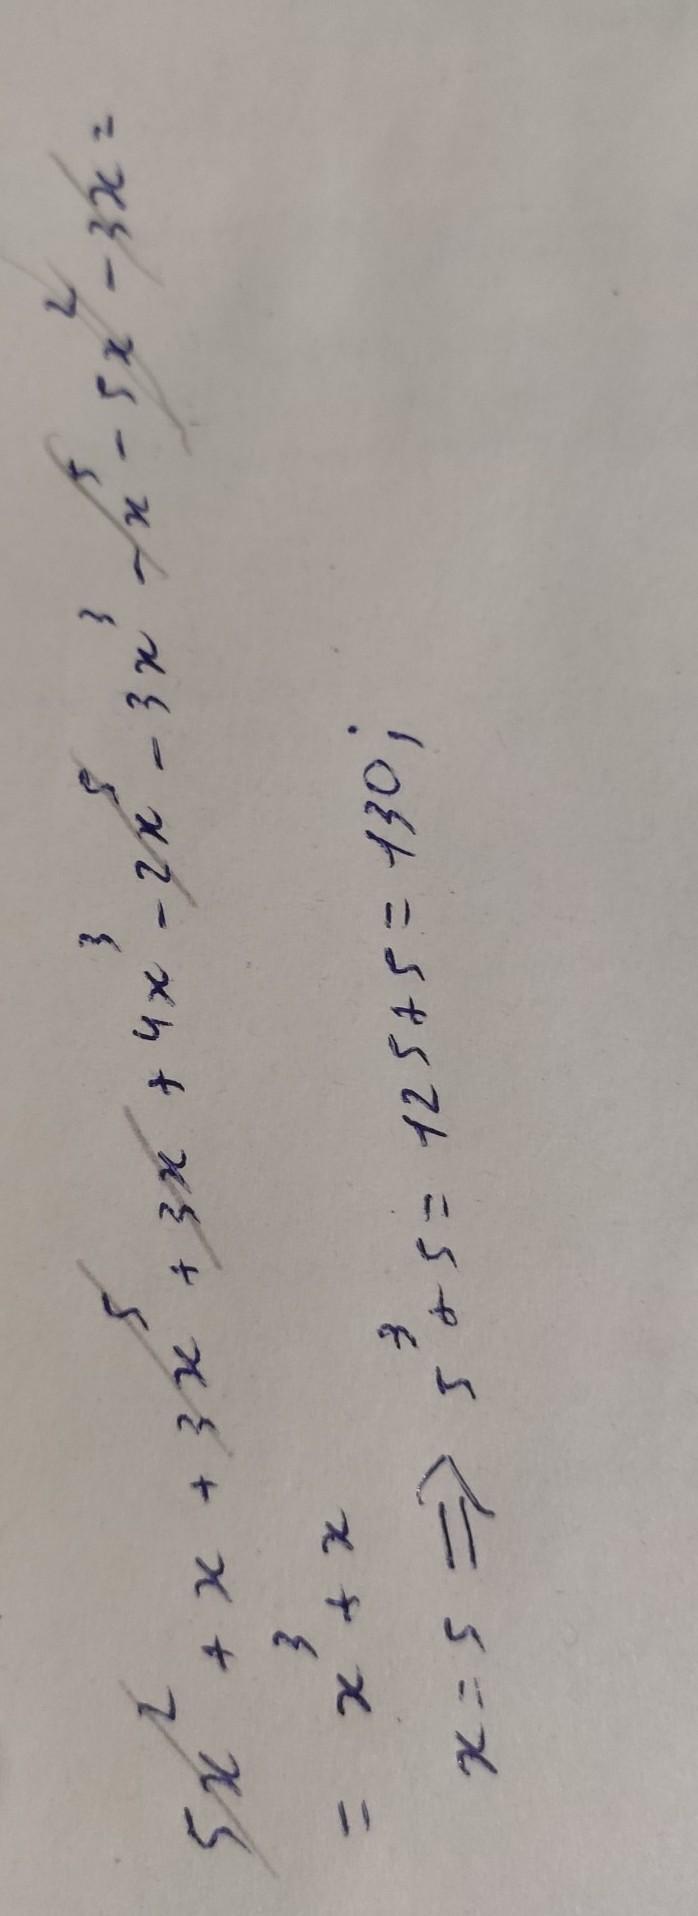 5x² + x + 3x⁵ + 3x + 4x³ - 2x⁵ - 3x³ - x⁵ - 5x² - 3x =
= x³ + x
x = 5 ⇒ 5³ + 5 = 125 + 5 = 130;